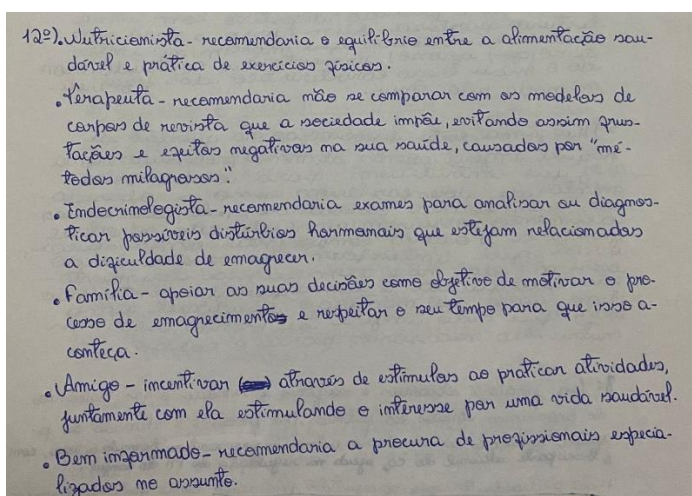 12º). Nutricionista - recomendaria o equilíbrio entre a alimentação sau-
dável e prática de exercícios físicos.
• Terapeuta - recomendaria não se comparar com os modelos de
corpos de revista que a sociedade impõe, evitando assim frus-
tações e efeitos negativos na sua saúde, causados por "mé-
todos milagrosos."
• Endocrinologista - recomendaria exames para analisar ou diagnos-
ticar possíveis distúrbios hormonais que estejam relacionados
a dificuldade de emagrecer.
• Família - apoiar as suas decisões como objetivo de motivar o pro-
cesso de emagrecimento e respeitar o seu tempo para que isso a-
conteça.
• Amigo - incentivar através de estímulos ao praticar atividades,
juntamente com ela estimulando o interesse por uma vida saudável.
• Bem informado - recomendaria a procura de profissionais especia-
lizados no assunto.